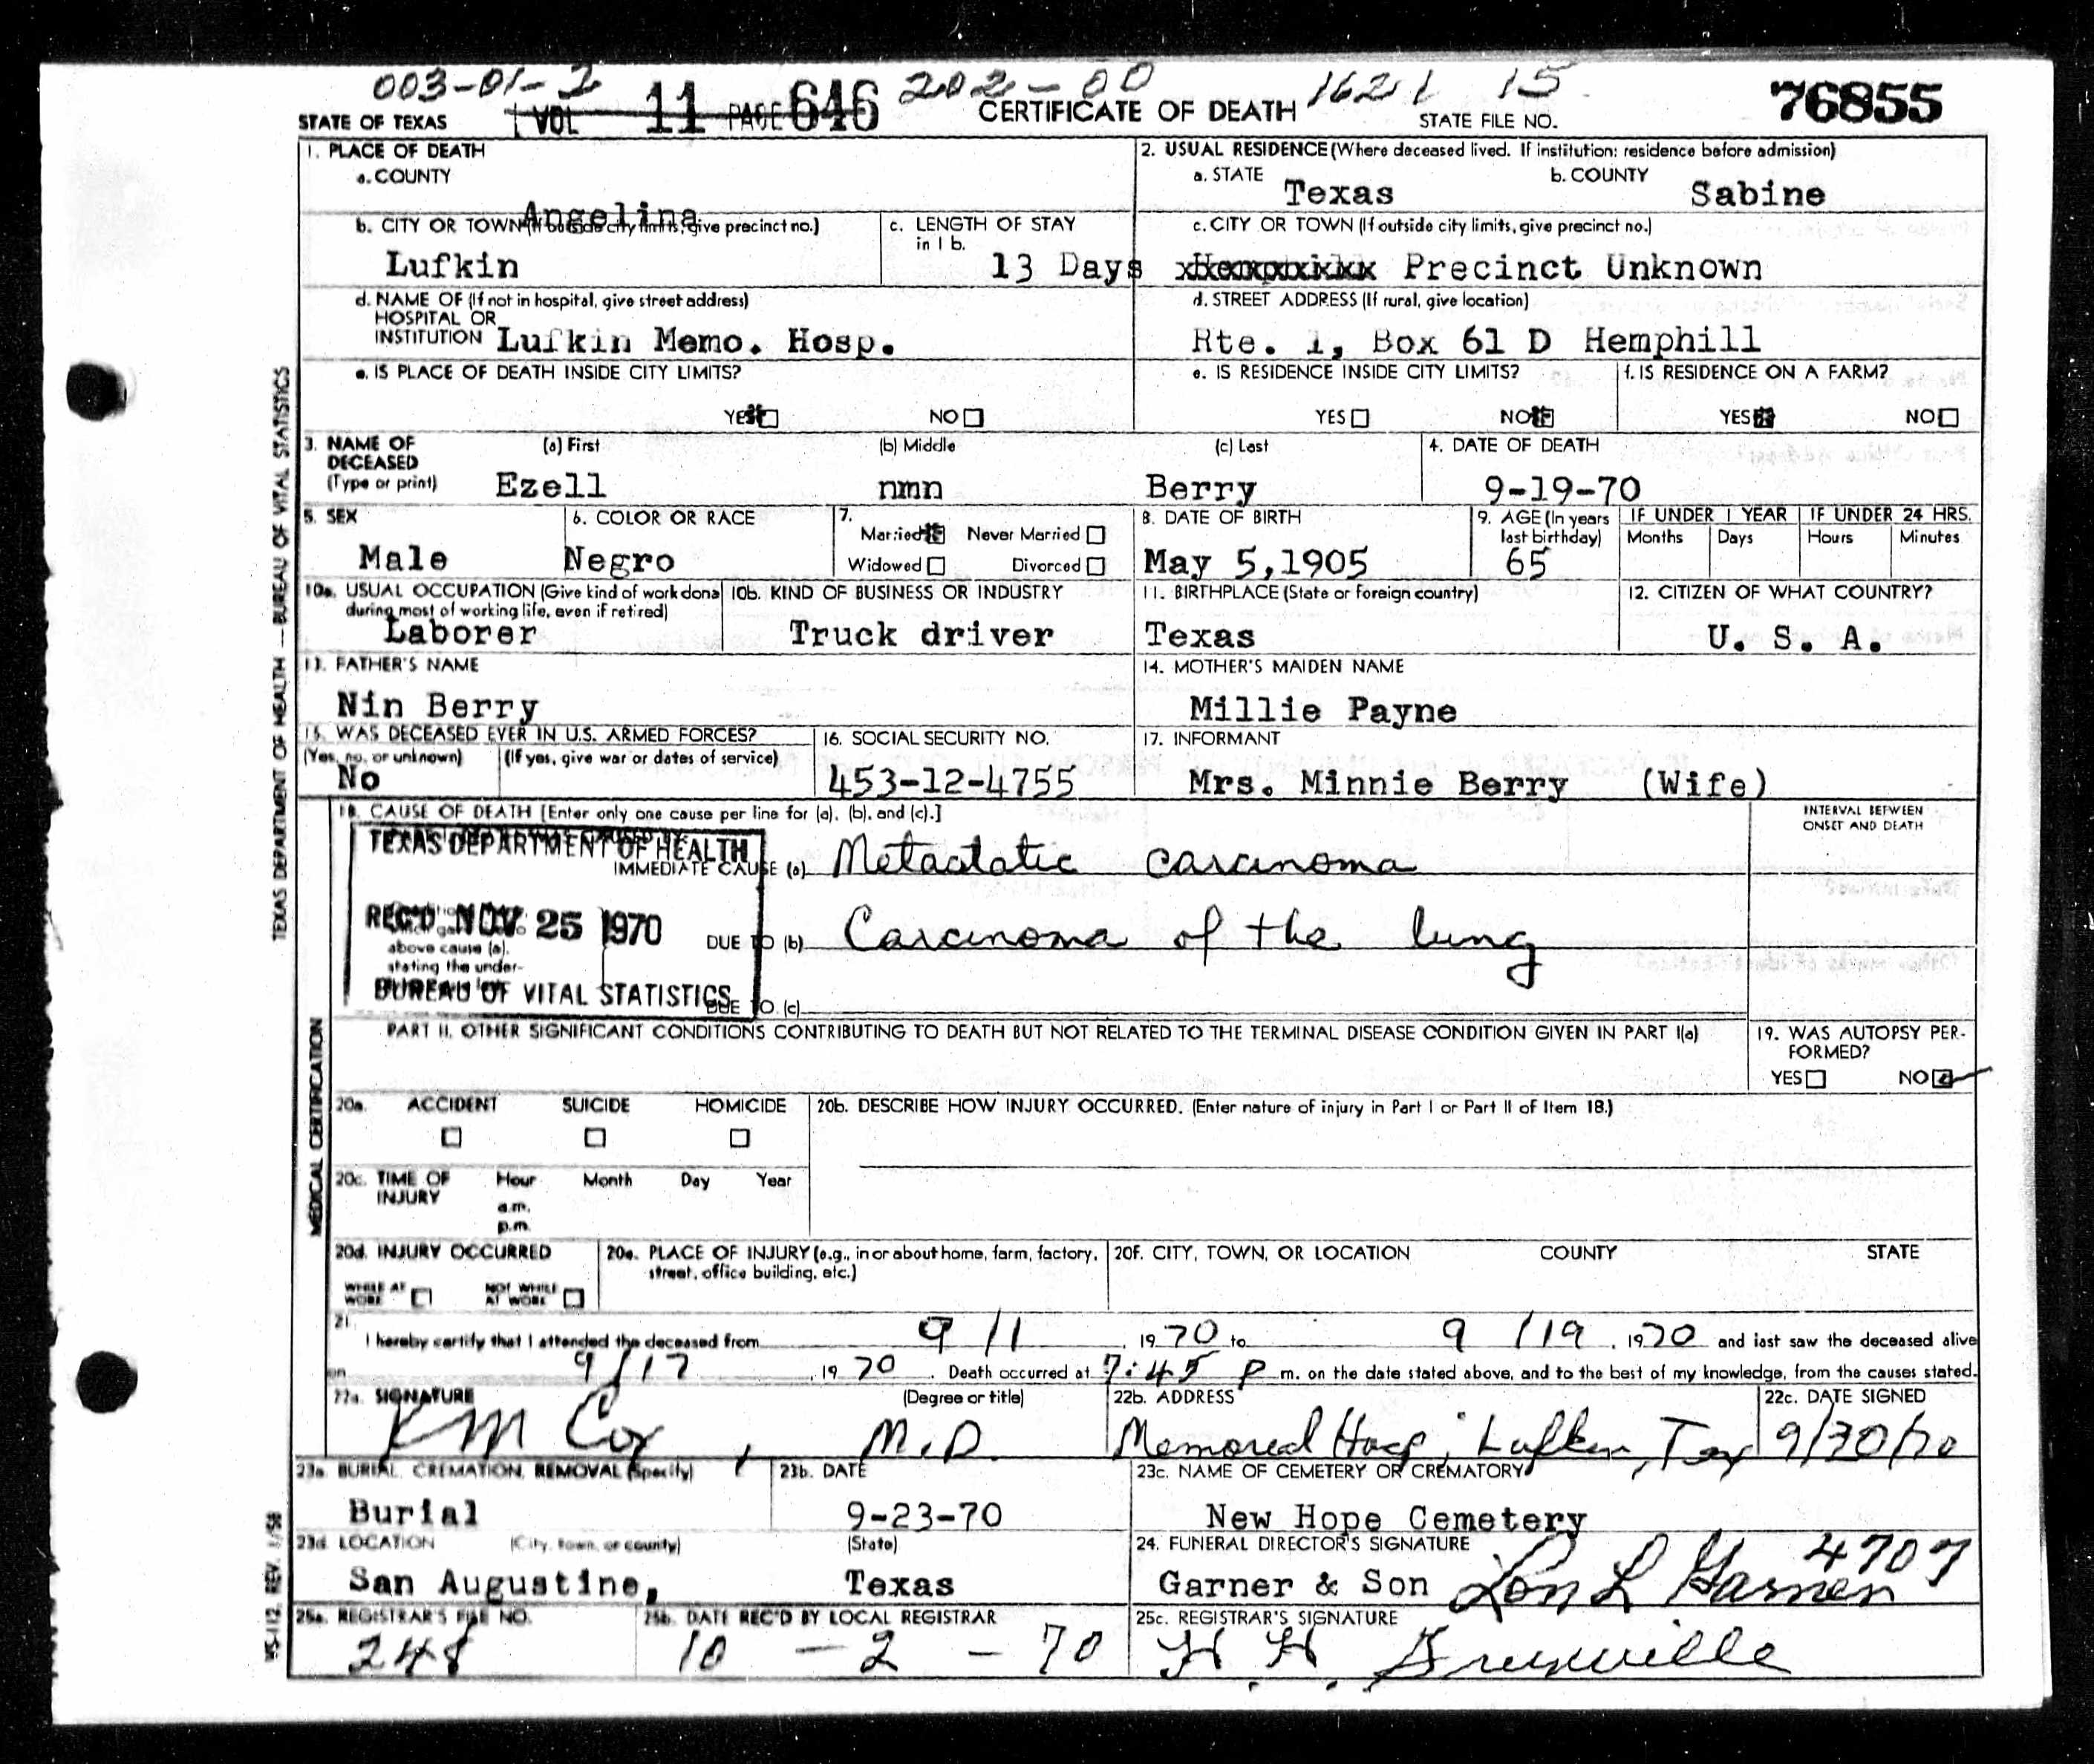 003-01-2 202-00 1621 15
STATE OF TEXAS VOL 11 PAGE 646 CERTIFICATE OF DEATH STATE FILE NO. 76855
1. PLACE OF DEATH
a. COUNTY
Angelina
2. USUAL RESIDENCE (Where deceased lived. If institution: residence before admission)
a. STATE Texas b. COUNTY Sabine
b. CITY OR TOWN (If outside city limits, give precinct no.)
Lufkin
c. LENGTH OF STAY
in 1 b.
13 Days
c. CITY OR TOWN (If outside city limits, give precinct no.)
Precinct Unknown
d. NAME OF (If not in hospital, give street address)
HOSPITAL OR
INSTITUTION Lufkin Memo. Hosp.
d. STREET ADDRESS (If rural, give location)
Rte. 1, Box 61 D Hemphill
e. IS PLACE OF DEATH INSIDE CITY LIMITS?
YES NO
e. IS RESIDENCE INSIDE CITY LIMITS?
YES NO
f. IS RESIDENCE ON A FARM?
YES NO
3. NAME OF DECEASED (Type or print)
(a) First (b) Middle (c) Last
Ezell nmn Berry
4. DATE OF DEATH
9-19-70
5. SEX
Male
6. COLOR OR RACE
Negro
7.
Married Never Married
Widowed Divorced
8. DATE OF BIRTH
May 5,1905
9. AGE (In years
last birthday)
65
IF UNDER 1 YEAR IF UNDER 24 HRS.
Months Days Hours Minutes
10a. USUAL OCCUPATION (Give kind of work done
during most of working life, even if retired)
Laborer
10b. KIND OF BUSINESS OR INDUSTRY
Truck driver
11. BIRTHPLACE (State or foreign country)
Texas
12. CITIZEN OF WHAT COUNTRY?
U. S. A.
13. FATHER'S NAME
Nin Berry
14. MOTHER'S MAIDEN NAME
Millie Payne
15. WAS DECEASED EVER IN U.S. ARMED FORCES?
(Yes, no, or unknown) (If yes, give war or dates of service)
No
16. SOCIAL SECURITY NO.
453-12-4755
17. INFORMANT
Mrs. Minnie Berry (Wife)
18. CAUSE OF DEATH [Enter only one cause per line for (a), (b), and (c).]
INTERVAL BETWEEN
ONSET AND DEATH
TEXAS DEPARTMENT OF HEALTH
IMMEDIATE CAUSE (a) Metastatic carcinoma
REC'D NOV 25 1970
above cause (a),
stating the under-
DUE TO (b) Carcinoma of the lung
BUREAU OF VITAL STATISTICS
DUE TO (c)
PART II. OTHER SIGNIFICANT CONDITIONS CONTRIBUTING TO DEATH BUT NOT RELATED TO THE TERMINAL DISEASE CONDITION GIVEN IN PART I(a)
19. WAS AUTOPSY PER-
FORMED?
YES NO
20a. ACCIDENT SUICIDE HOMICIDE
20b. DESCRIBE HOW INJURY OCCURRED. (Enter nature of injury in Part I or Part II of Item 18.)
20c. TIME OF INJURY Hour Month Day Year
a.m.
p.m.
20d. INJURY OCCURRED
WHILE AT WORK NOT WHILE AT WORK
20e. PLACE OF INJURY (e.g., in or about home, farm, factory,
street, office building, etc.)
20F. CITY, TOWN, OR LOCATION COUNTY STATE
21. I hereby certify that I attended the deceased from 9/1, 1970 to 9/19, 1970 and last saw the deceased alive
on 9/17, 1970. Death occurred at 7:45 P m. on the date stated above, and to the best of my knowledge, from the causes stated.
22a. SIGNATURE (Degree or title)
Cox, M.D.
22b. ADDRESS
Memorial Hosp, Lufkin, Tex
22c. DATE SIGNED
9/30/70
23a. BURIAL, CREMATION, REMOVAL (Specify)
Burial
23b. DATE
9-23-70
23c. NAME OF CEMETERY OR CREMATORY
New Hope Cemetery
23d. LOCATION (City, town, or county) (State)
San Augustine, Texas
24. FUNERAL DIRECTOR'S SIGNATURE 4707
Garner & Son Lon L Garner
25a. REGISTRAR'S FILE NO.
248
25b. DATE REC'D BY LOCAL REGISTRAR
10-2-70
25c. REGISTRAR'S SIGNATURE
H H
TEXAS DEPARTMENT OF HEALTH — BUREAU OF VITAL STATISTICS
MEDICAL CERTIFICATION
VS-112 REV. 1/58